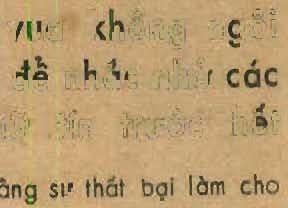 vua không ngồi
để nhắc nhở các
tín trước hết
sự thất bại làm cho